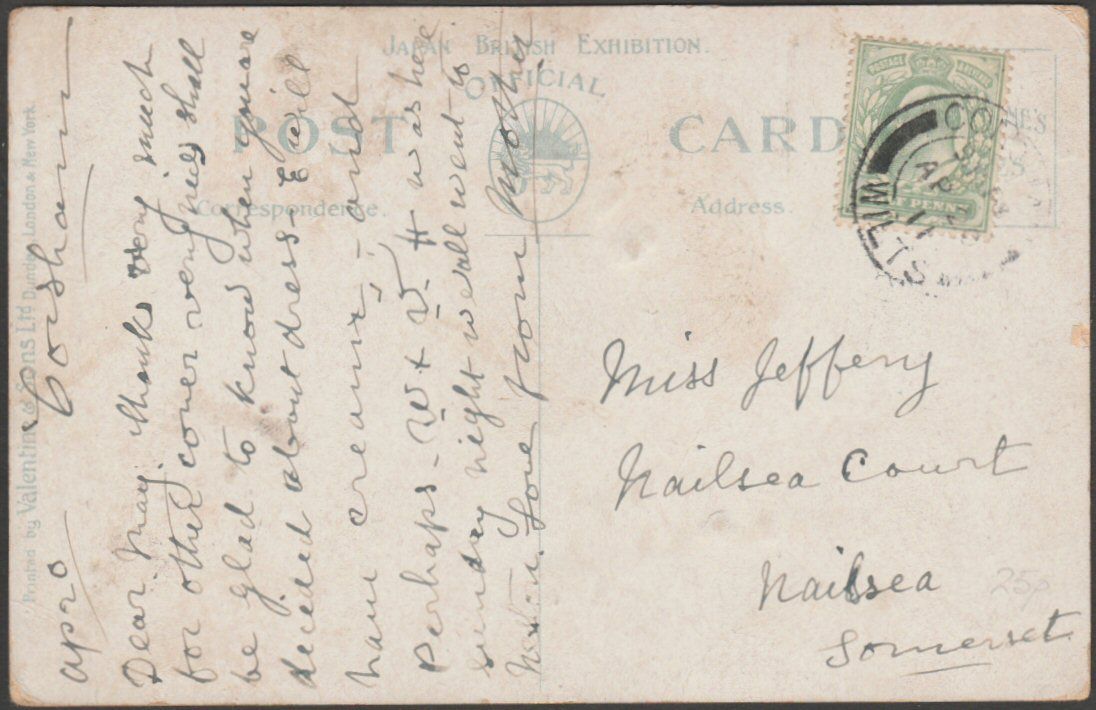 JAPAN BRITISH EXHIBITION.
OFFICIAL
POST CARD
Correspondence.
Address.
Printed by Valentine & Sons Ltd Dundee, London & New York.
Corsham
Dear May. Thanks very much
for other cover very nice shall
be glad to know when you are
decided about dress - E will
have creamy, - and
Perhaps - W + W. H was here
sunday night we all went to
Love from Mother
Miss Jeffery
Nailsea Court
Nailsea
Somerset
25p
WILTS
AP
11
PENNY
POSTAGE